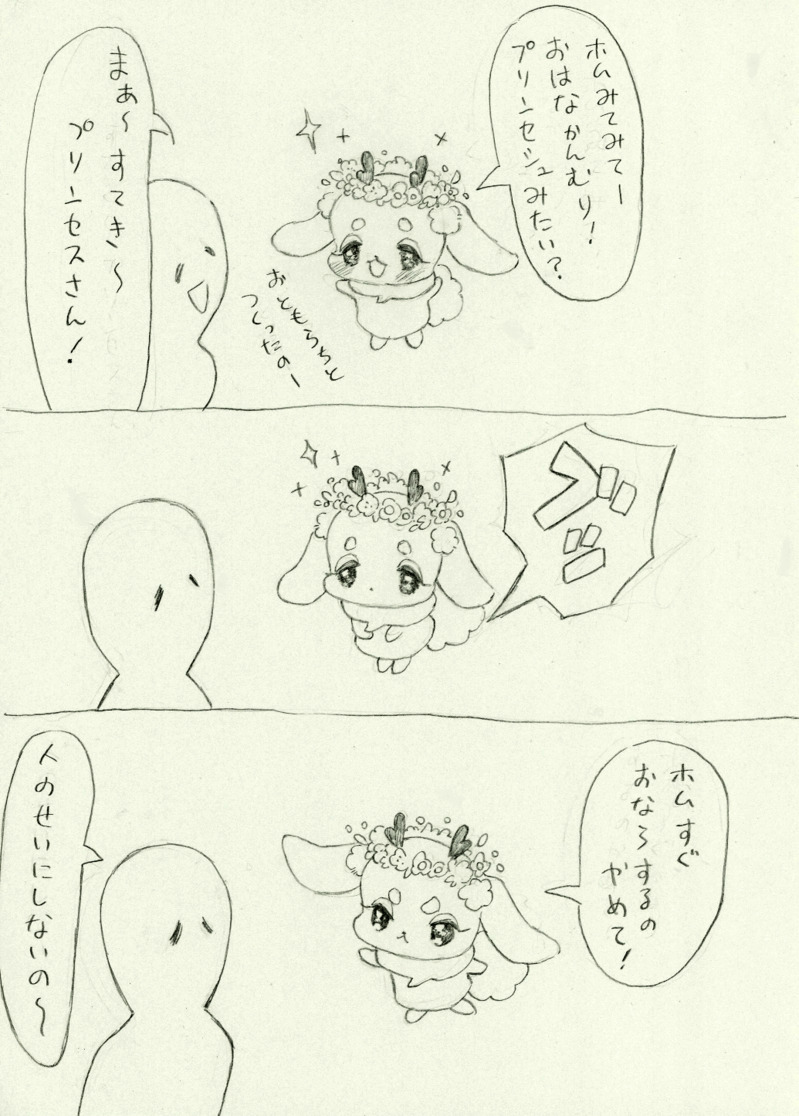 ホムみてみてー
おはなかんむり!
プリンセシュみたい?
おともらちと
つくったのー
まぁ〜すてき〜
プリンセスさん!
ブブ
ホムすぐ
おならするの
やめて!
人のせいにしないの〜